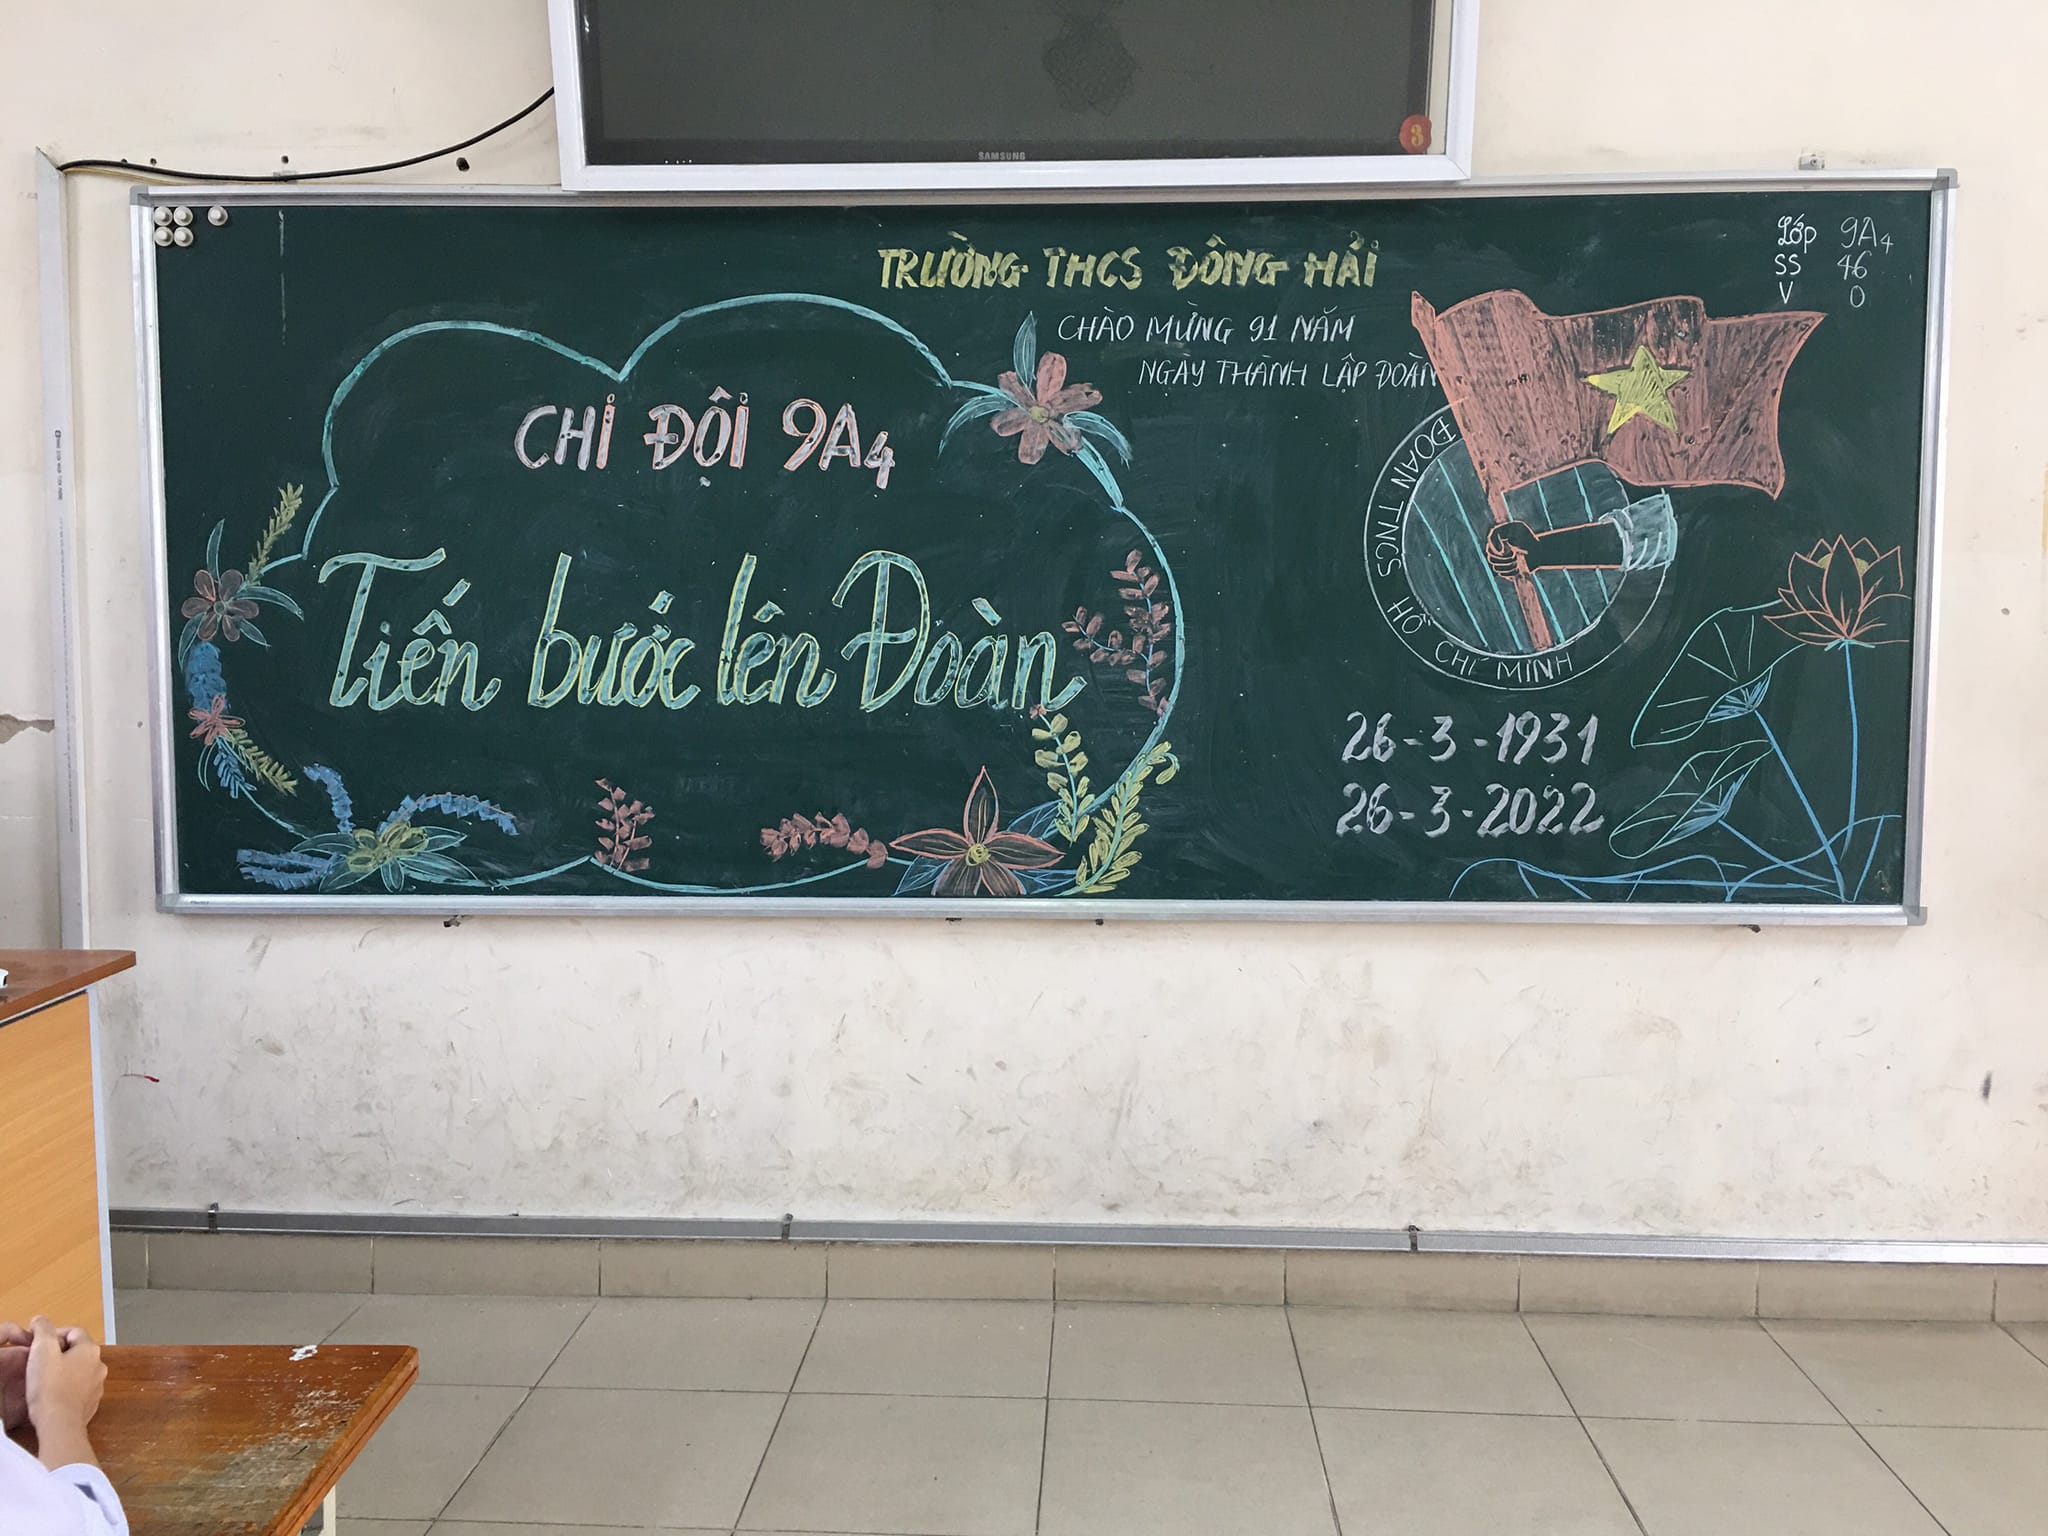 SAMSUNG
3
TRƯỜNG THCS ĐÔNG HẢI
CHÀO MỪNG 91 NĂM
NGÀY THÀNH LẬP ĐOÀN
Lớp 9A4
SS 46
V 0
CHI ĐỘI 9A4
Tiến bước lên Đoàn
ĐOÀN TNCS HỒ CHÍ MINH
26-3-1931
26-3-2022